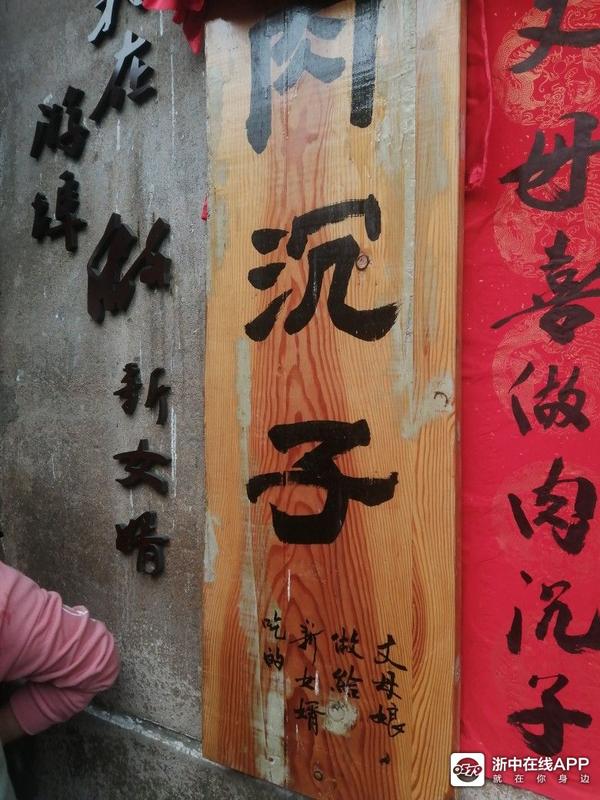 丈母喜做肉沉子
肉沉子
丈母娘
做给
新女婿
吃的
新女婿
在
游埠
浙中在线APP
就在你身边